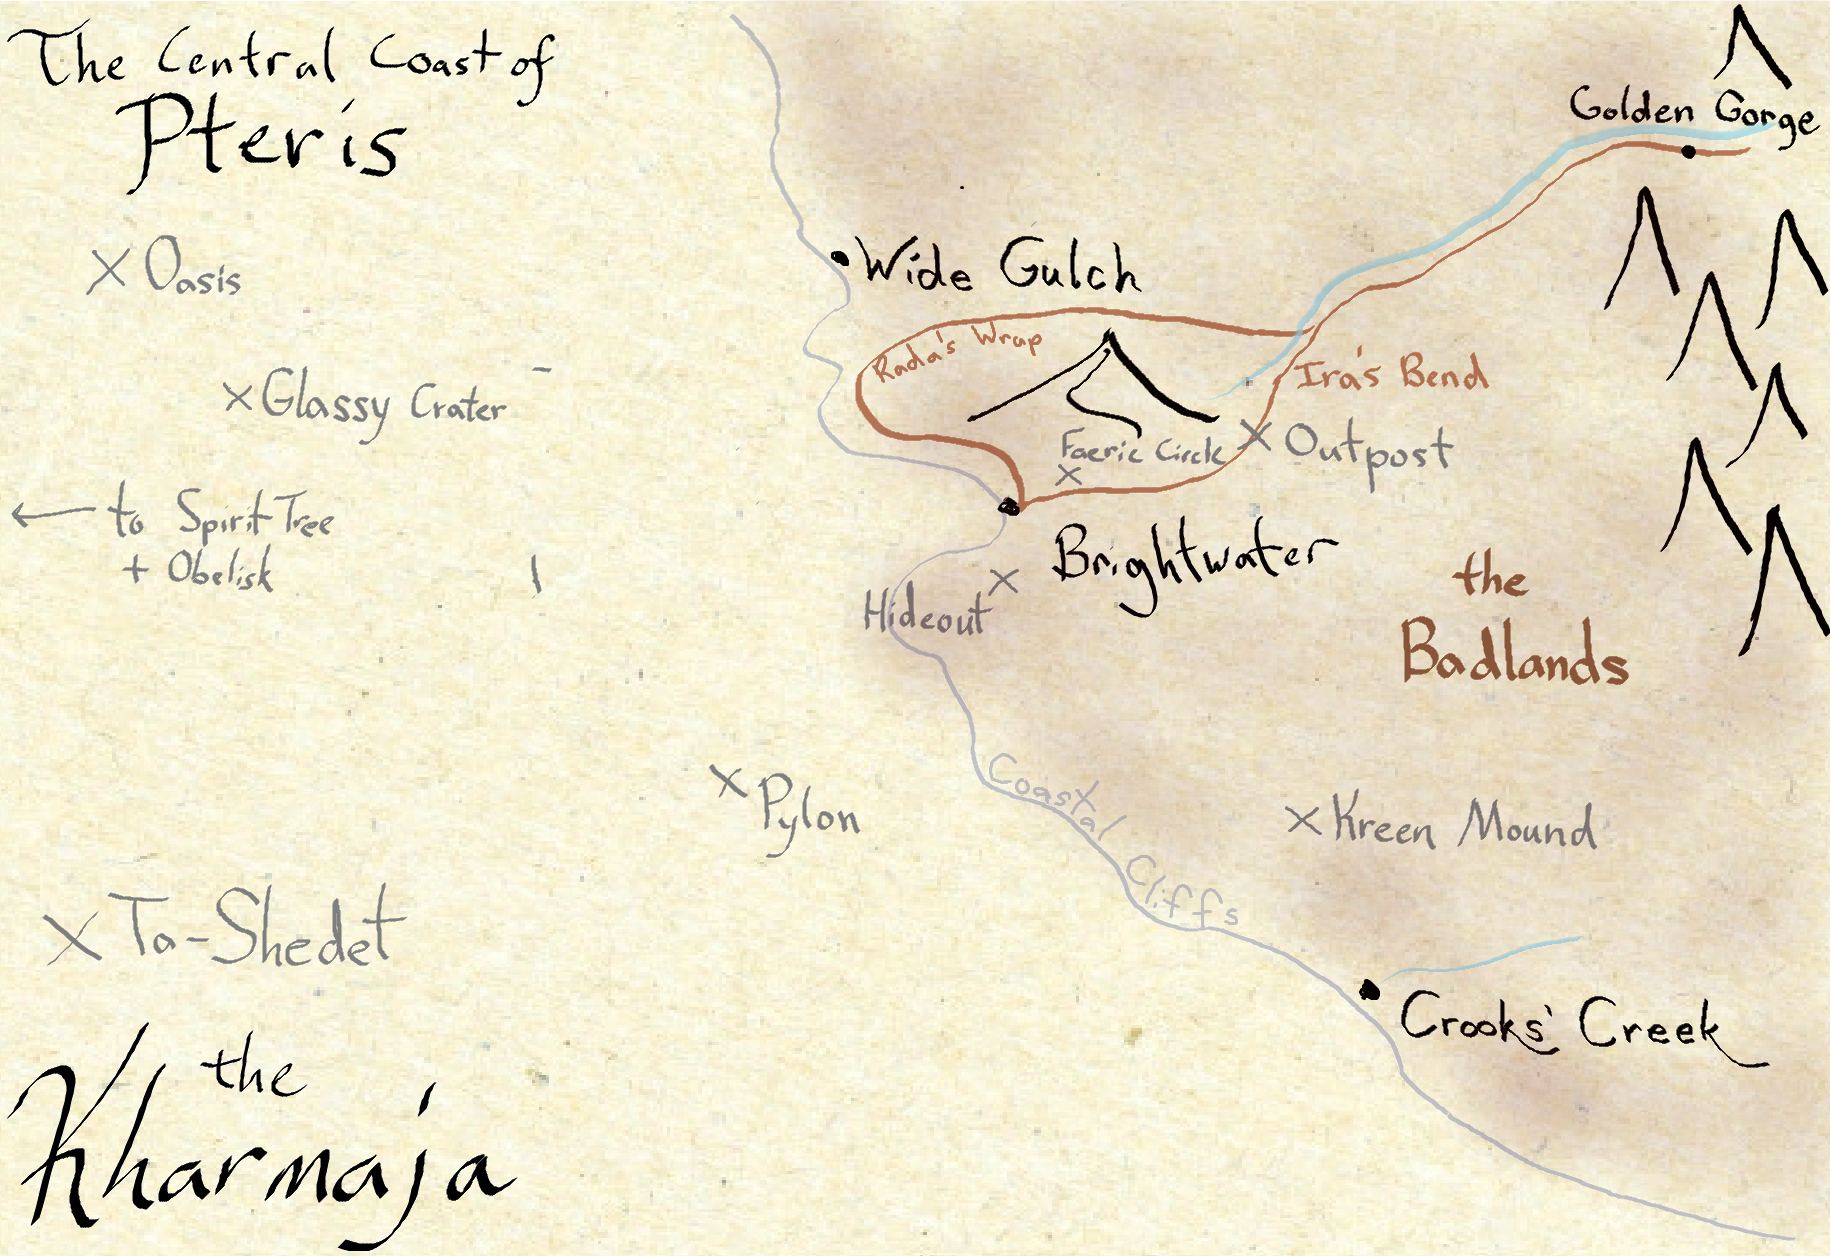 The Central Coast of
Pteris
Golden Gorge
Oasis
Wide Gulch
Rada's Wrap
Ira's Bend
Glassy Crater
Faerie Circle
Outpost
to Spirit Tree
+ Obelisk
Brightwater
Hideout
the
Badlands
Coastal
Cliffs
Pylon
Kreen Mound
Ta-Shedet
Crooks' Creek
the
Kharmaja